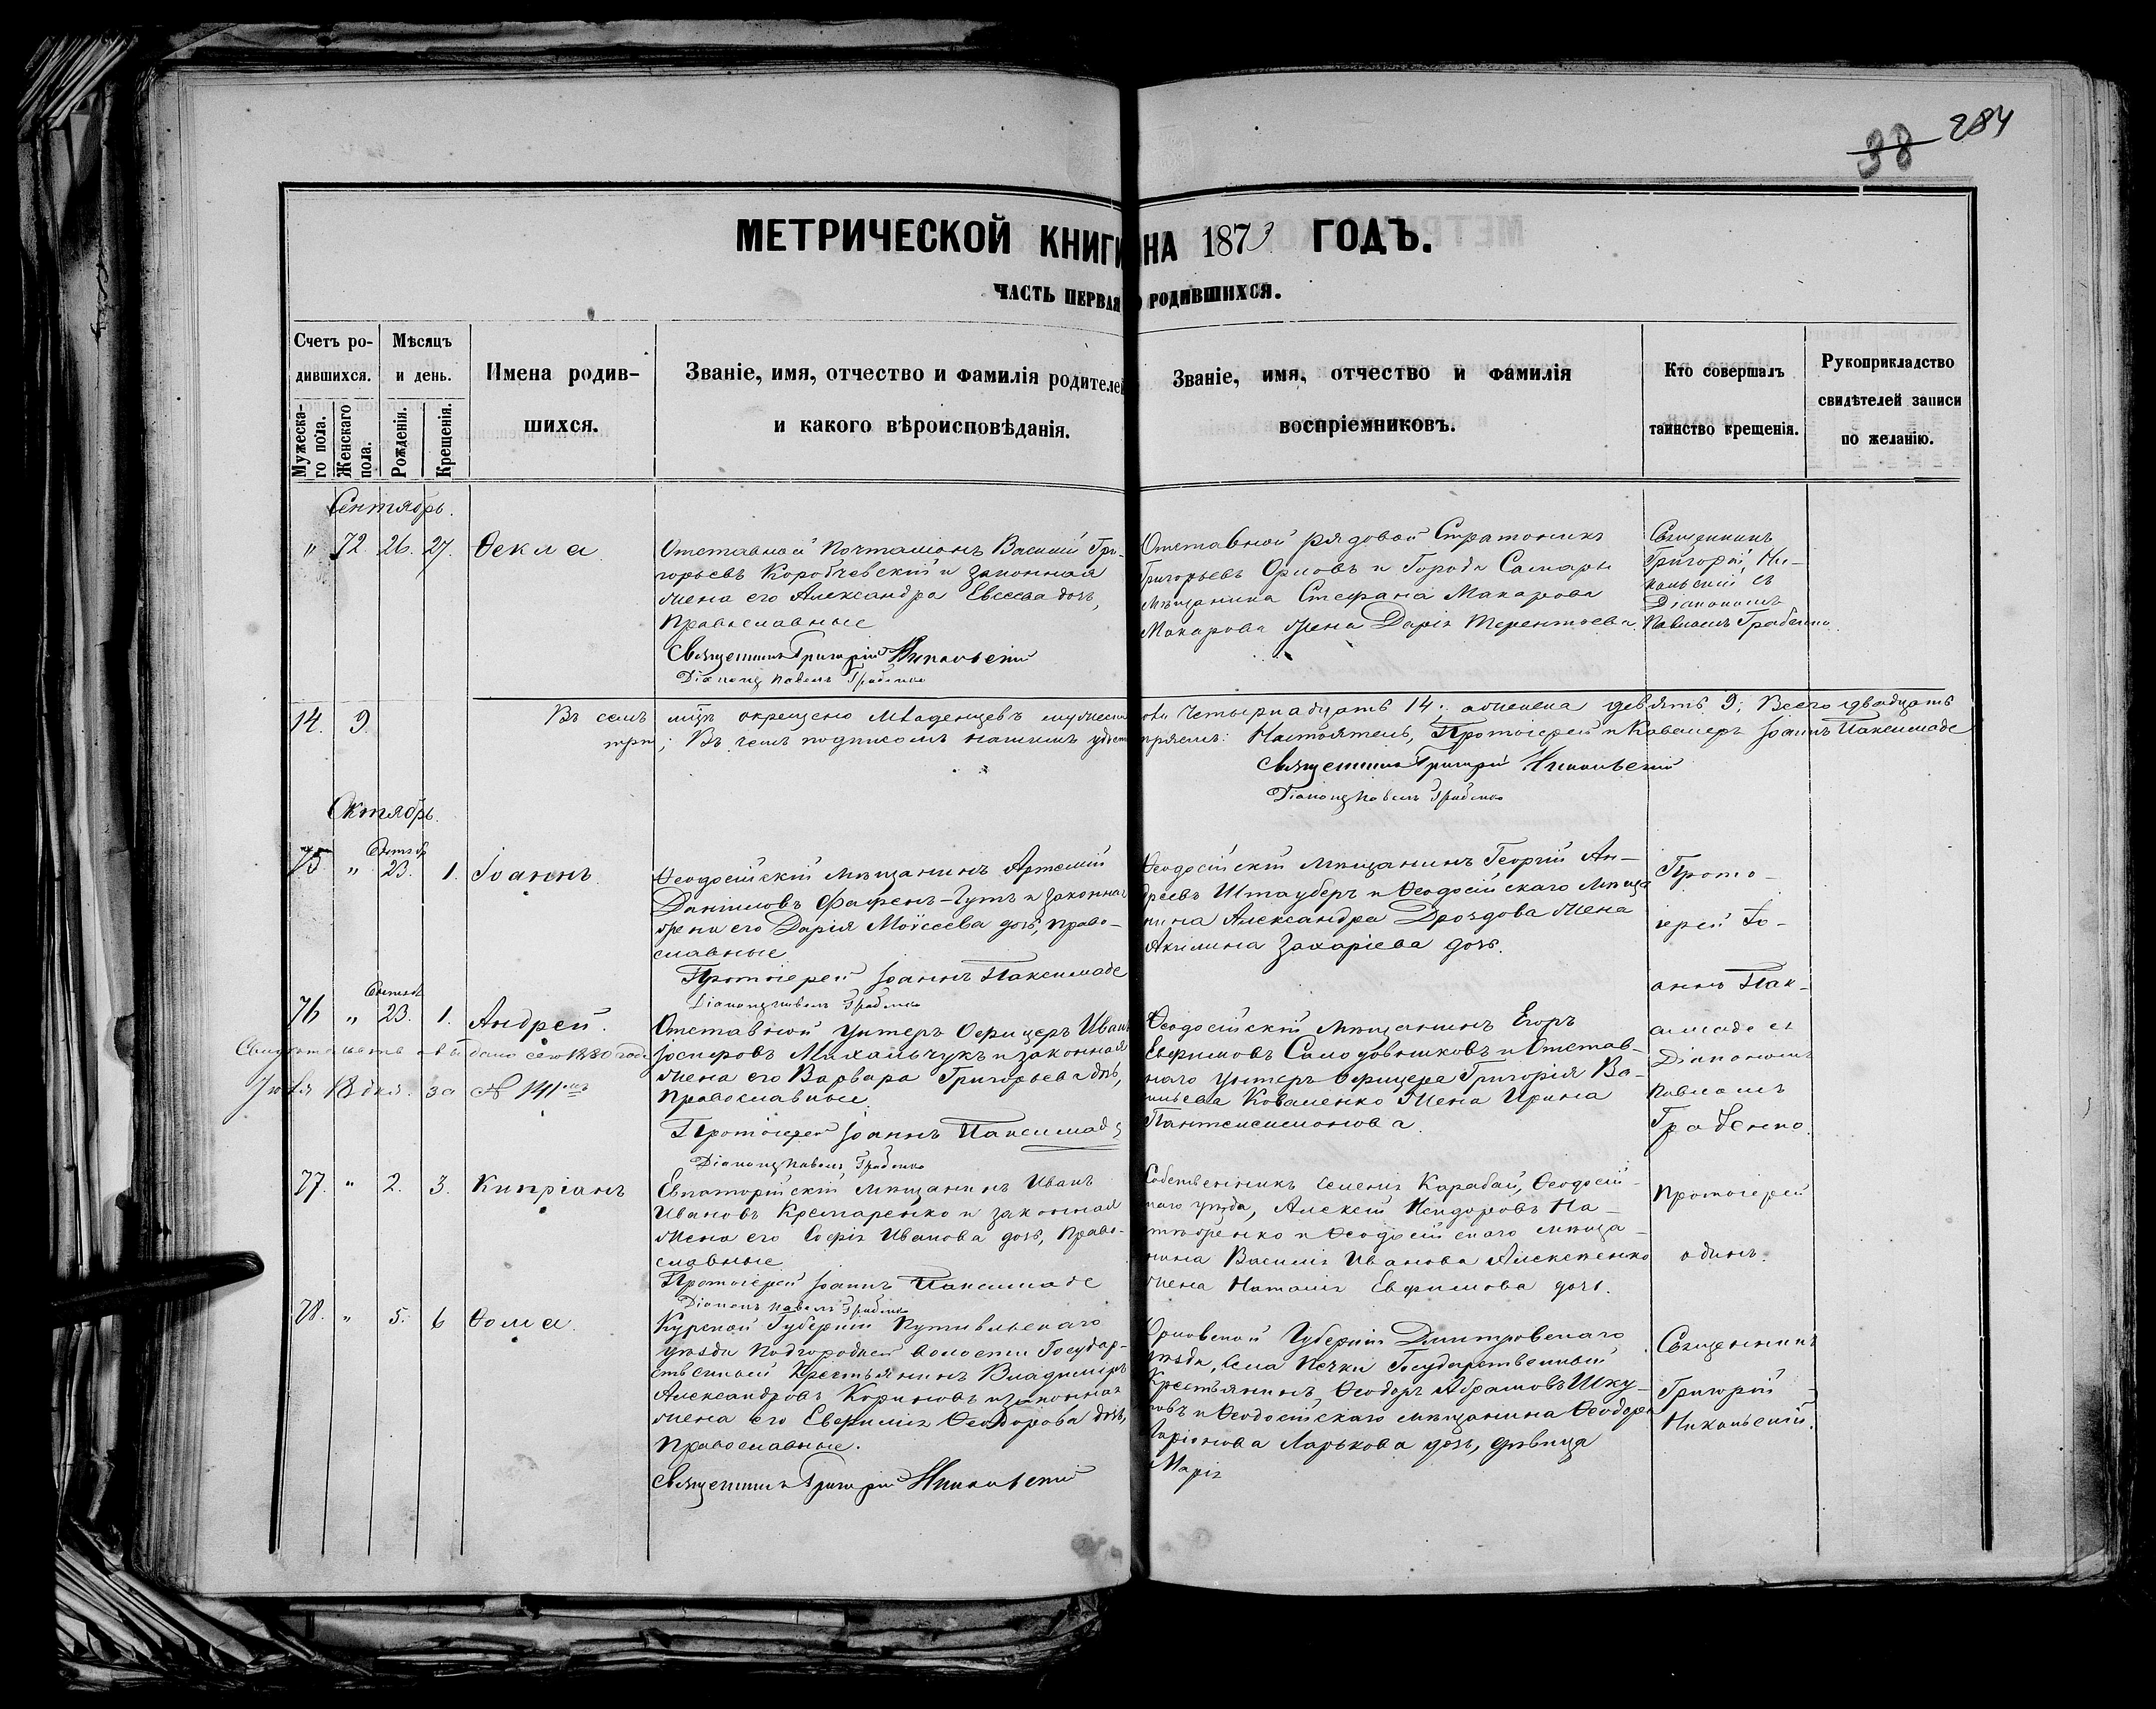 38 284
МЕТРИЧЕСКОЙ КНИГИ НА 1873 ГОДЪ.
ЧАСТЬ ПЕРВАЯ О РОДИВШИХСЯ.
Счетъ ро-
дившихся.
Мужеска-
го пола.
Женскаго
пола.
Мѣсяцъ
и день.
Рожденія.
Крещенія.
Имена родив-
шихся.
Званіе, имя, отчество и фамилія родителей
и какого вѣроисповѣданія.
Званіе, имя, отчество и фамилія
воспріемниковъ.
Кто совершалъ
таинство крещенія.
Рукоприкладство
свидѣтелей записи
по желанію.
Сентябрь.
" 72 26. 27. Ѳекла
Отставной Почталіонъ Василій Гри-
горьевъ Коробчевскій и законная
жена его Александра Евсеева дочь,
Православные
Священникъ Григорій Никольскій
Діаконъ Павелъ Граденко
Отставной рядовой Стратоникъ
Григорьевъ Орловъ и Города Самары
мѣщанина Стефана Макарова
Макарова жена Дарія Терентьева.
Священникъ
Григорій Ни-
кольскій съ
Діакономъ
Павломъ Граденко.
14. 9. Въ семъ мцѣ окрещено младенцевъ мужеска пола четырнадцать 14; а женска девять 9; Всего двадцать
три; Въ чемъ подписомъ нашимъ удостовѣряемъ: Настоятель, Протоіерей и Кавалеръ Іоаннъ Паксимаде
Священникъ Григорій Никольскій
Діаконъ Павелъ Граденко
Октябрь.
75. " Сентяб 23. 1. Іоаннъ
Ѳеодосійскій мѣщанинъ Артемій
Даніиловъ Фафенъ-Гутъ и законная
жена его Дарія Моисеева дочь, право-
славные
Протоіерей Іоаннъ Паксимаде
Діаконъ Павелъ Граденко
Ѳеодосійскій мѣщанинъ Георгій Ан-
дреевъ Штауберъ и Ѳеодосійскаго мѣща
нина Александра Дроздова жена
Акилина Захаріева дочь.
Прото-
іерей Іо-
аннъ Пак-
симаде съ
Діакономъ
Павломъ
Граденко.
76 " Сентяб 23. 1. Андрей.
Свидѣтельство выдано сего 1880 года
Іюля 18 дня. за № 141мъ
Отставной унтеръ Офицеръ Иванъ
Іосифовъ Михальчукъ и законная
жена его Варвара Григорьева дочь,
Православные.
Протоіерей Іоаннъ Паксимаде
Діаконъ Павелъ Граденко
Ѳеодосійскій мѣщанинъ Егоръ
Евфимовъ Солодовниковъ и Отстав-
наго унтеръ Офицера Григорія Ва-
сильева Коваленко жена Ирина
Пантелеимонова
77. " 2. 3. Кипріанъ
Евпаторійскій мѣщанинъ Иванъ
Ивановъ Кремаренко и законная
жена его Софія Иванова дочь, Право-
славные
Протоіерей Іоаннъ Паксимаде
Діаконъ Павелъ Граденко
Собственникъ селенія Карабай, Ѳеодосій-
скаго уѣзда, Алексій Исидоровъ На-
и Ѳеодосійскаго мѣща-
нина Василія Иванова Алексѣенко
жена Наталія Евфимова дочь.
Протоіерей
одинъ.
78. " 5. 6 Ѳома
Курской Губерніи Путивльскаго
уѣзда Подгородней волости Государ-
ственный Крестьянинъ Владиміръ
Александровъ Кориновъ и законная
жена его Евфимія Ѳеодорова дочь,
Православные.
Священникъ Григорій Никольскій
Орловской Губерніи Дмитровскаго
уѣзда, села Печки Государственный
Крестьянинъ Ѳеодоръ Абрамовъ Шку-
ровъ и Ѳеодосійскаго мѣщанина Ѳеодора
Ларіонова Ларькова дочь, дѣвица
Марія
Священникъ
Григорій
Никольскій.